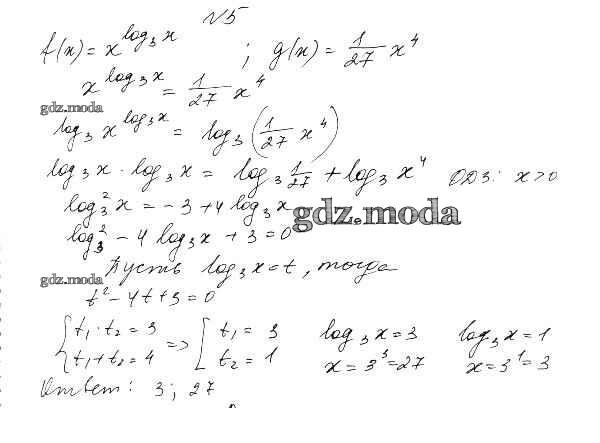 N5
f(x) = x^{log_3 x} ; g(x) = \frac{1}{27} x^4
x^{log_3 x} = \frac{1}{27} x^4
gdz.moda
log_3 x^{log_3 x} = log_3 (\frac{1}{27} x^4)
log_3 x · log_3 x = log_3 \frac{1}{27} + log_3 x^4 ОДЗ: x>0
log_3^2 x = -3 + 4 log_3 x
gdz.moda
log_3^2 - 4 log_3 x + 3 = 0
Пусть log_3 x = t, тогда
gdz.moda
t^2 - 4t + 3 = 0
{ t_1 · t_2 = 3 => [ t_1 = 3 log_3 x = 3 log_3 x = 1
t_1 + t_2 = 4 t_2 = 1 x = 3^3 = 27 x = 3^1 = 3
Ответ: 3; 27